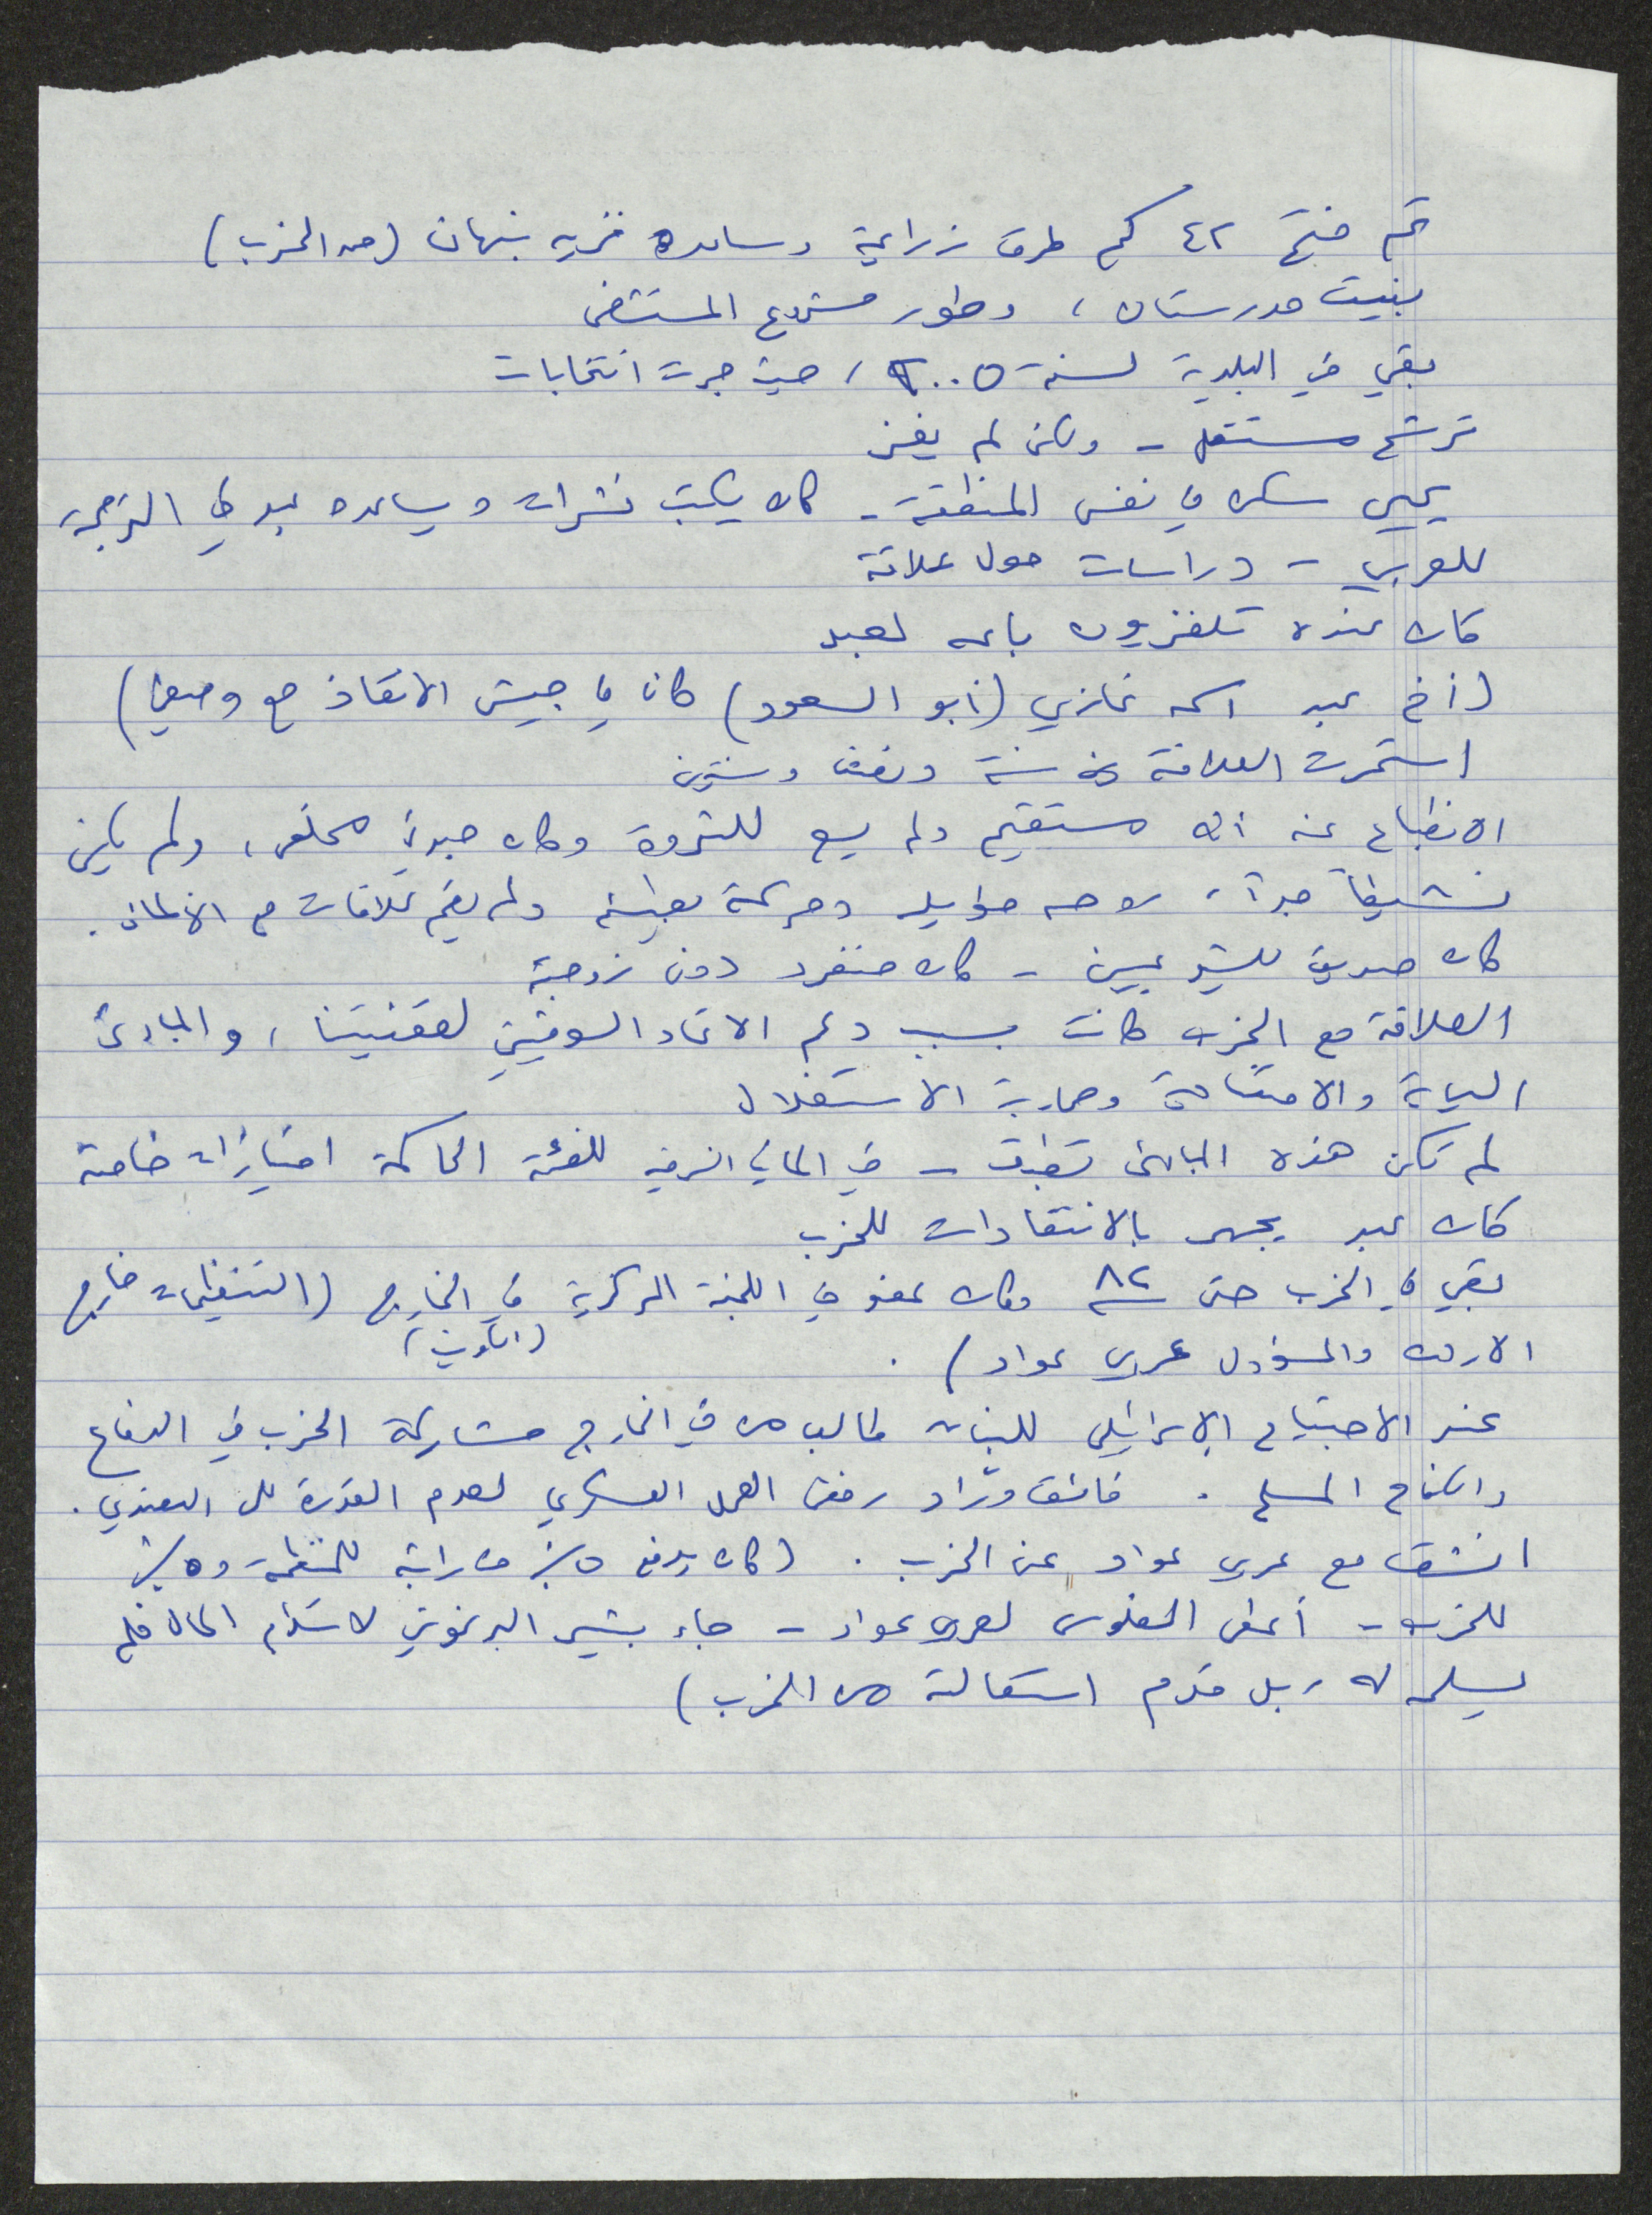 تم فتح ٤٢ كم طرق زراعية وساعده فريد نبهان (من الحزب)
بنيت مدرستان ، وطور مشروع المستشفى
بقي في البلدية لسنة ٢٠٠٥ ، حيث جرت انتخابات
ترشح مستقل - ولكن لم يفز
يحيى سكن في نفس المنطقة - كان يكتب نشرات ويساعده عبد في الترجمة
للعربي - دراسات حول علاقة
كان عنده تلفزيون باعه لعبد
(أخ عبد اسمه غازي (أبو السعود) كان في جيش الانقاذ مع وصفي)
استمرت العلاقة سنة ونصف وسنتين
الانطباع عنه أنه مستقيم ولم يسع للثروة وكان مخلص ، ولم يكن
نشيطاً جداً ، روحه طويلة وحركته بطيئة ولم يقم علاقات مع الألمان .
كان صديق للشيوعيين - كان منفرد دون زوجة
العلاقة مع الحزب كانت بسبب دعم الاتحاد السوفيتي لقضيتنا ، والمبادئ
السياسية والاجتماعية ومحاربة الاستغلال
لم تكن هذه المبادئ تطبق - في ألمانيا الشرقية للفئة الحاكمة امتيازات خاصة
كان عبد يجهر بالانتقادات للحزب
بقي في الحزب حتى سنة ٨٢ وكان عضو في اللجنة المركزية في الخارج (التنظيمات خارج
(الكويت)
الاردن والمسؤول عربي عواد) .
عند الاجتياح الإسرائيلي للبنان طالب من في الخارج مشاركة الحزب في الدفاع
والكفاح المسلح . فائق ورّاد رفض العمل العسكري لعدم القدرة
انشق مع عربي عواد عن الحزب . (كان يدفع ٥٪ من راتبه للمنظمة و ٥٪
للحزب - أعطى الفلوس لعربي عواد - جاء بشير البرغوثي لاستلام المال فلم
يسلمه له ، بل قدم استقالة من الحزب)